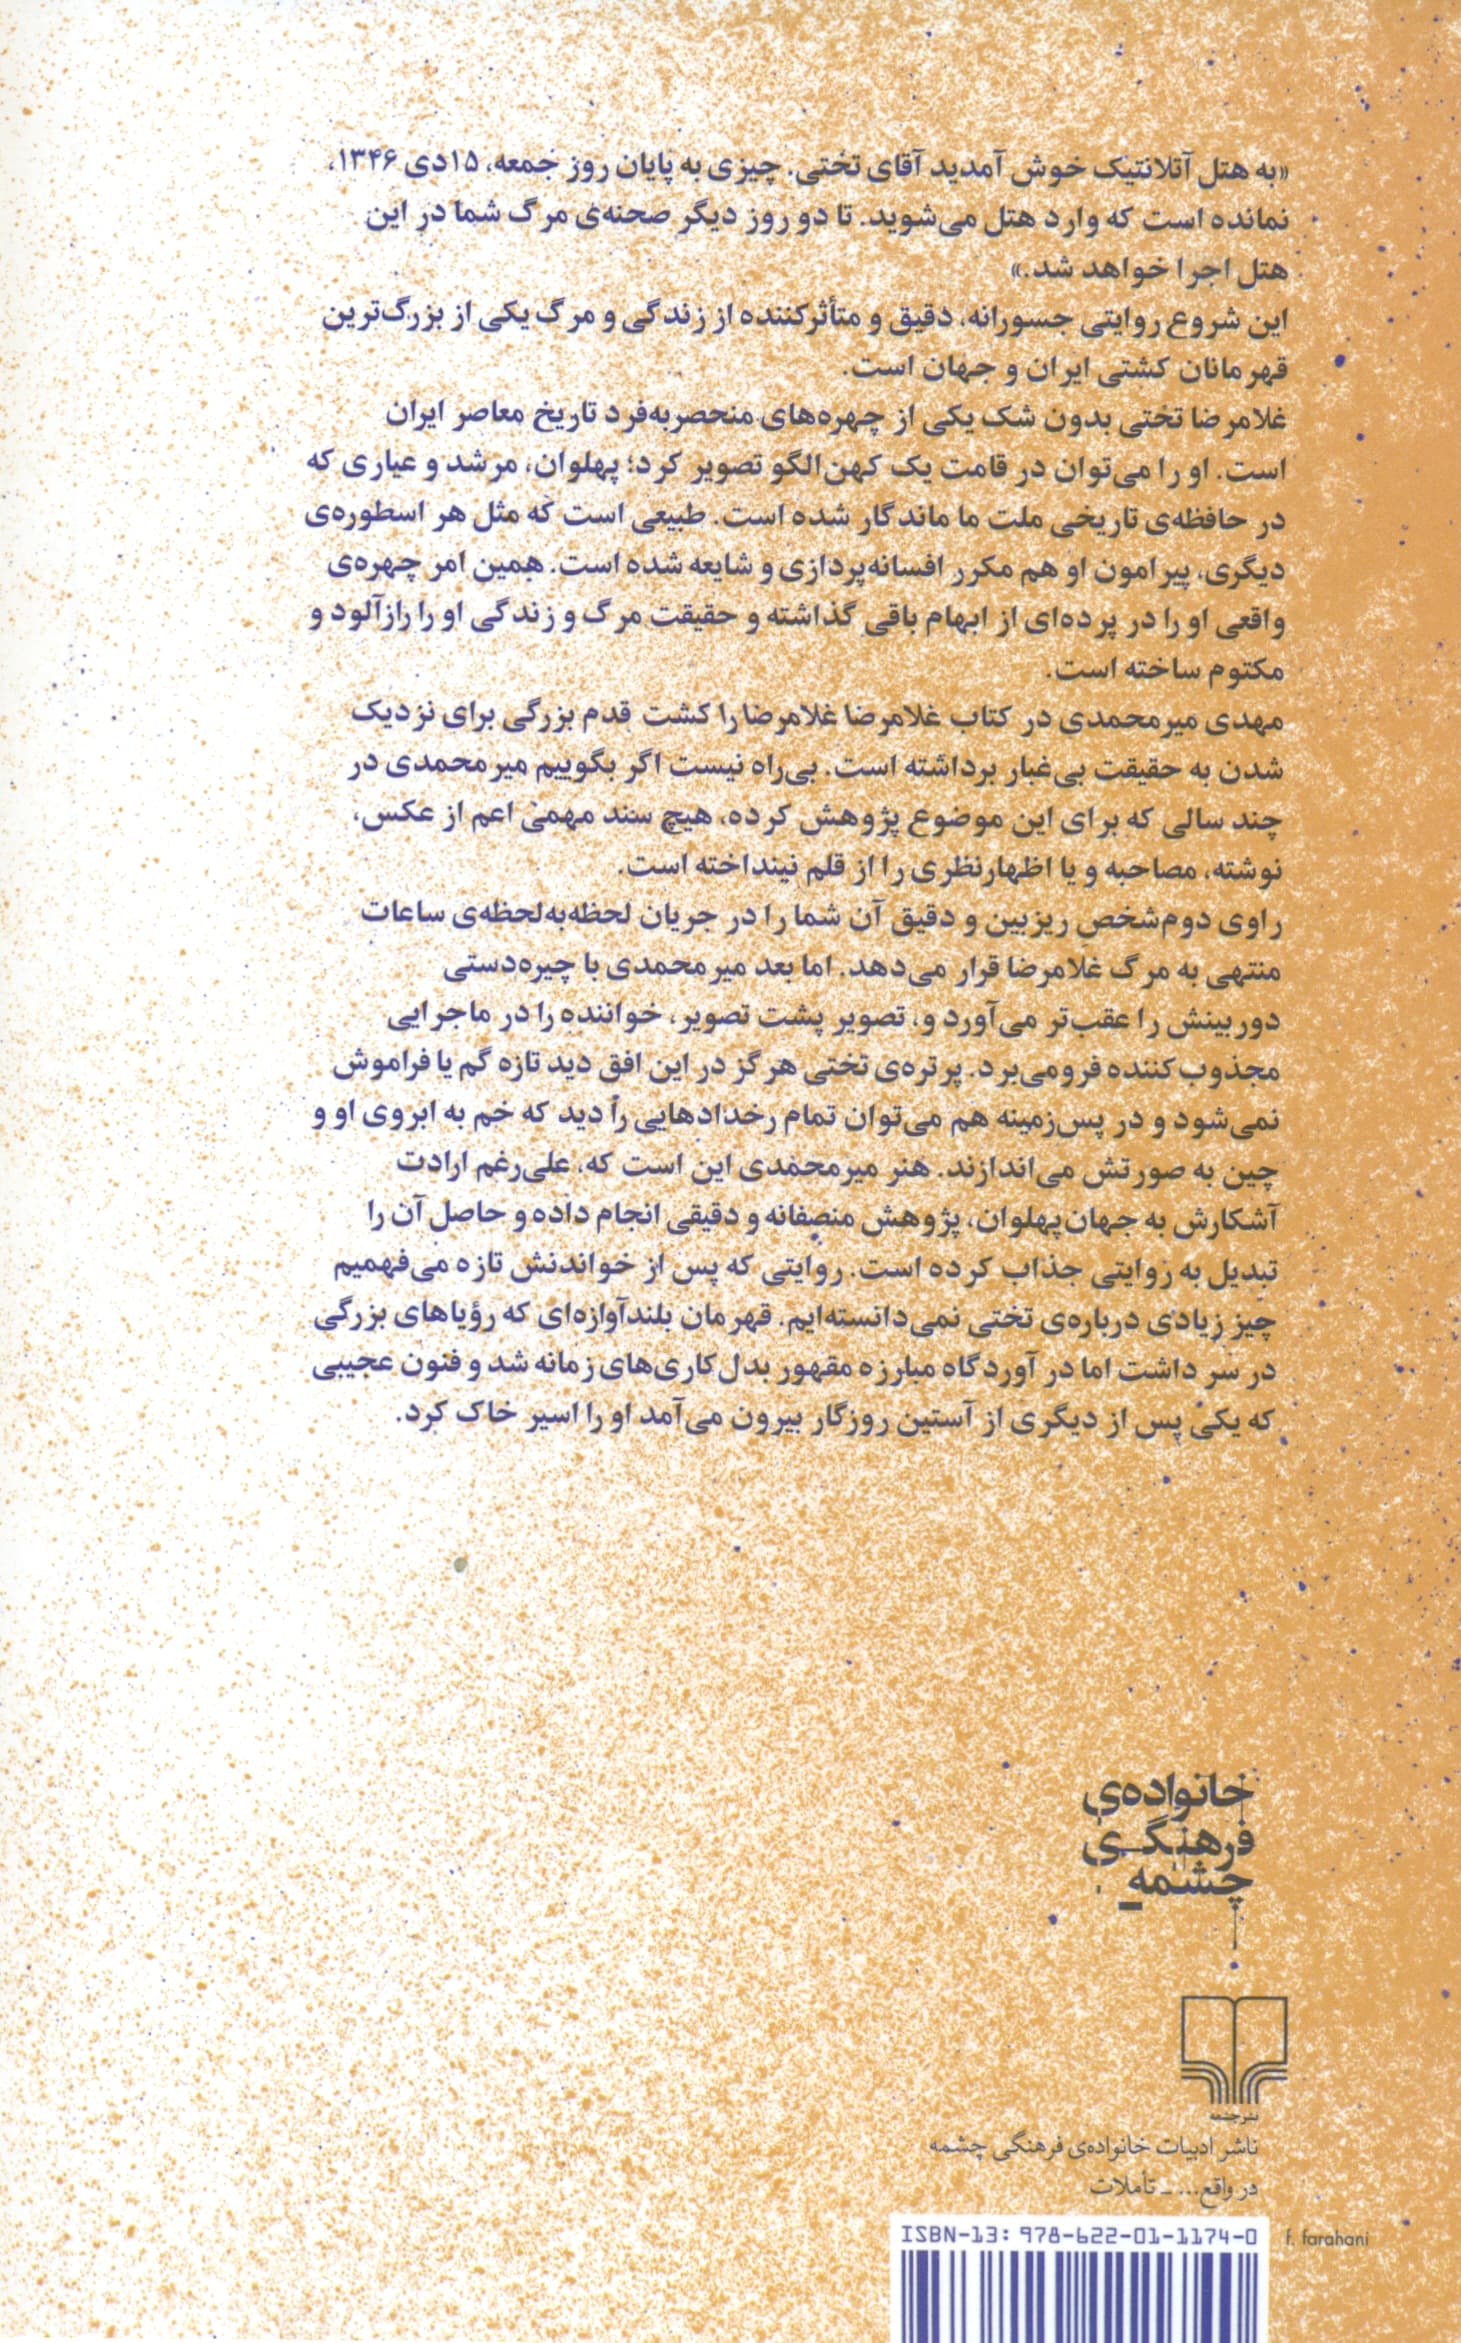 «به هتل آتلانتیک خوش آمدید آقای تختی. چیزی به پایان روز جمعه، ۱۵دی ۱۳۴۶،
نمانده است که وارد هتل می‌شوید. تا دو روز دیگر صحنه‌ی مرگ شما در این
هتل اجرا خواهد شد.»
این شروع روایتی جسورانه، دقیق و متأثرکننده از زندگی و مرگ یکی از بزرگ‌ترین
قهرمانان کشتی ایران و جهان است.
غلامرضا تختی بدون شک یکی از چهره‌های منحصربه‌فرد تاریخ معاصر ایران
است. او را می‌توان در قامت یک کهن‌الگو تصویر کرد؛ پهلوان، مرشد و عیاری که
در حافظه‌ی تاریخی ملت ما ماندگار شده است. طبیعی است که مثل هر اسطوره‌ی
دیگری، پیرامون او هم مکرر افسانه‌پردازی و شایعه شده است. همین امر چهره‌ی
واقعی او را در پرده‌ای از ابهام باقی گذاشته و حقیقت مرگ و زندگی او را رازآلود و
مکتوم ساخته است.
مهدی میرمحمدی در کتاب غلامرضا غلامرضا را کشت قدم بزرگی برای نزدیک
شدن به حقیقت بی‌غبار برداشته است. بی‌راه نیست اگر بگوییم میرمحمدی در
چند سالی که برای این موضوع پژوهش کرده، هیچ سند مهمی اعم از عکس،
نوشته، مصاحبه و یا اظهارنظری را از قلم نینداخته است.
راوی دوم‌شخصِ ریزبین و دقیق آن شما را در جریان لحظه‌به‌لحظه‌ی ساعات
منتهی به مرگ غلامرضا قرار می‌دهد. اما بعد میرمحمدی با چیره‌دستی
دوربینش را عقب‌تر می‌آورد و، تصویر پشت تصویر، خواننده را در ماجرایی
مجذوب‌کننده فرومی‌برد. پرتره‌ی تختی هرگز در این افق دید تازه گم یا فراموش
نمی‌شود و در پس‌زمینه هم می‌توان تمام رخدادهایی را دید که خم به ابروی او و
چین به صورتش می‌اندازند. هنر میرمحمدی این است که، علی‌رغم ارادت
آشکارش به جهان‌پهلوان، پژوهش منصفانه و دقیقی انجام داده و حاصل آن را
تبدیل به روایتی جذاب کرده است. روایتی که پس از خواندنش تازه می‌فهمیم
چیز زیادی درباره‌ی تختی نمی‌دانسته‌ایم. قهرمان بلندآوازه‌ای که رؤیاهای بزرگی
در سر داشت اما در آوردگاه مبارزه مقهور بدل‌کاری‌های زمانه شد و فنون عجیبی
که یکی پس از دیگری از آستین روزگار بیرون می‌آمد او را اسیر خاک کرد.
خانواده‌ی
فرهنگی
چشمه
نشرچشمه
ناشر ادبیات خانواده‌ی فرهنگی چشمه
در واقع... - تأملات
ISBN-13: 978-622-01-1174-0
f. farahani